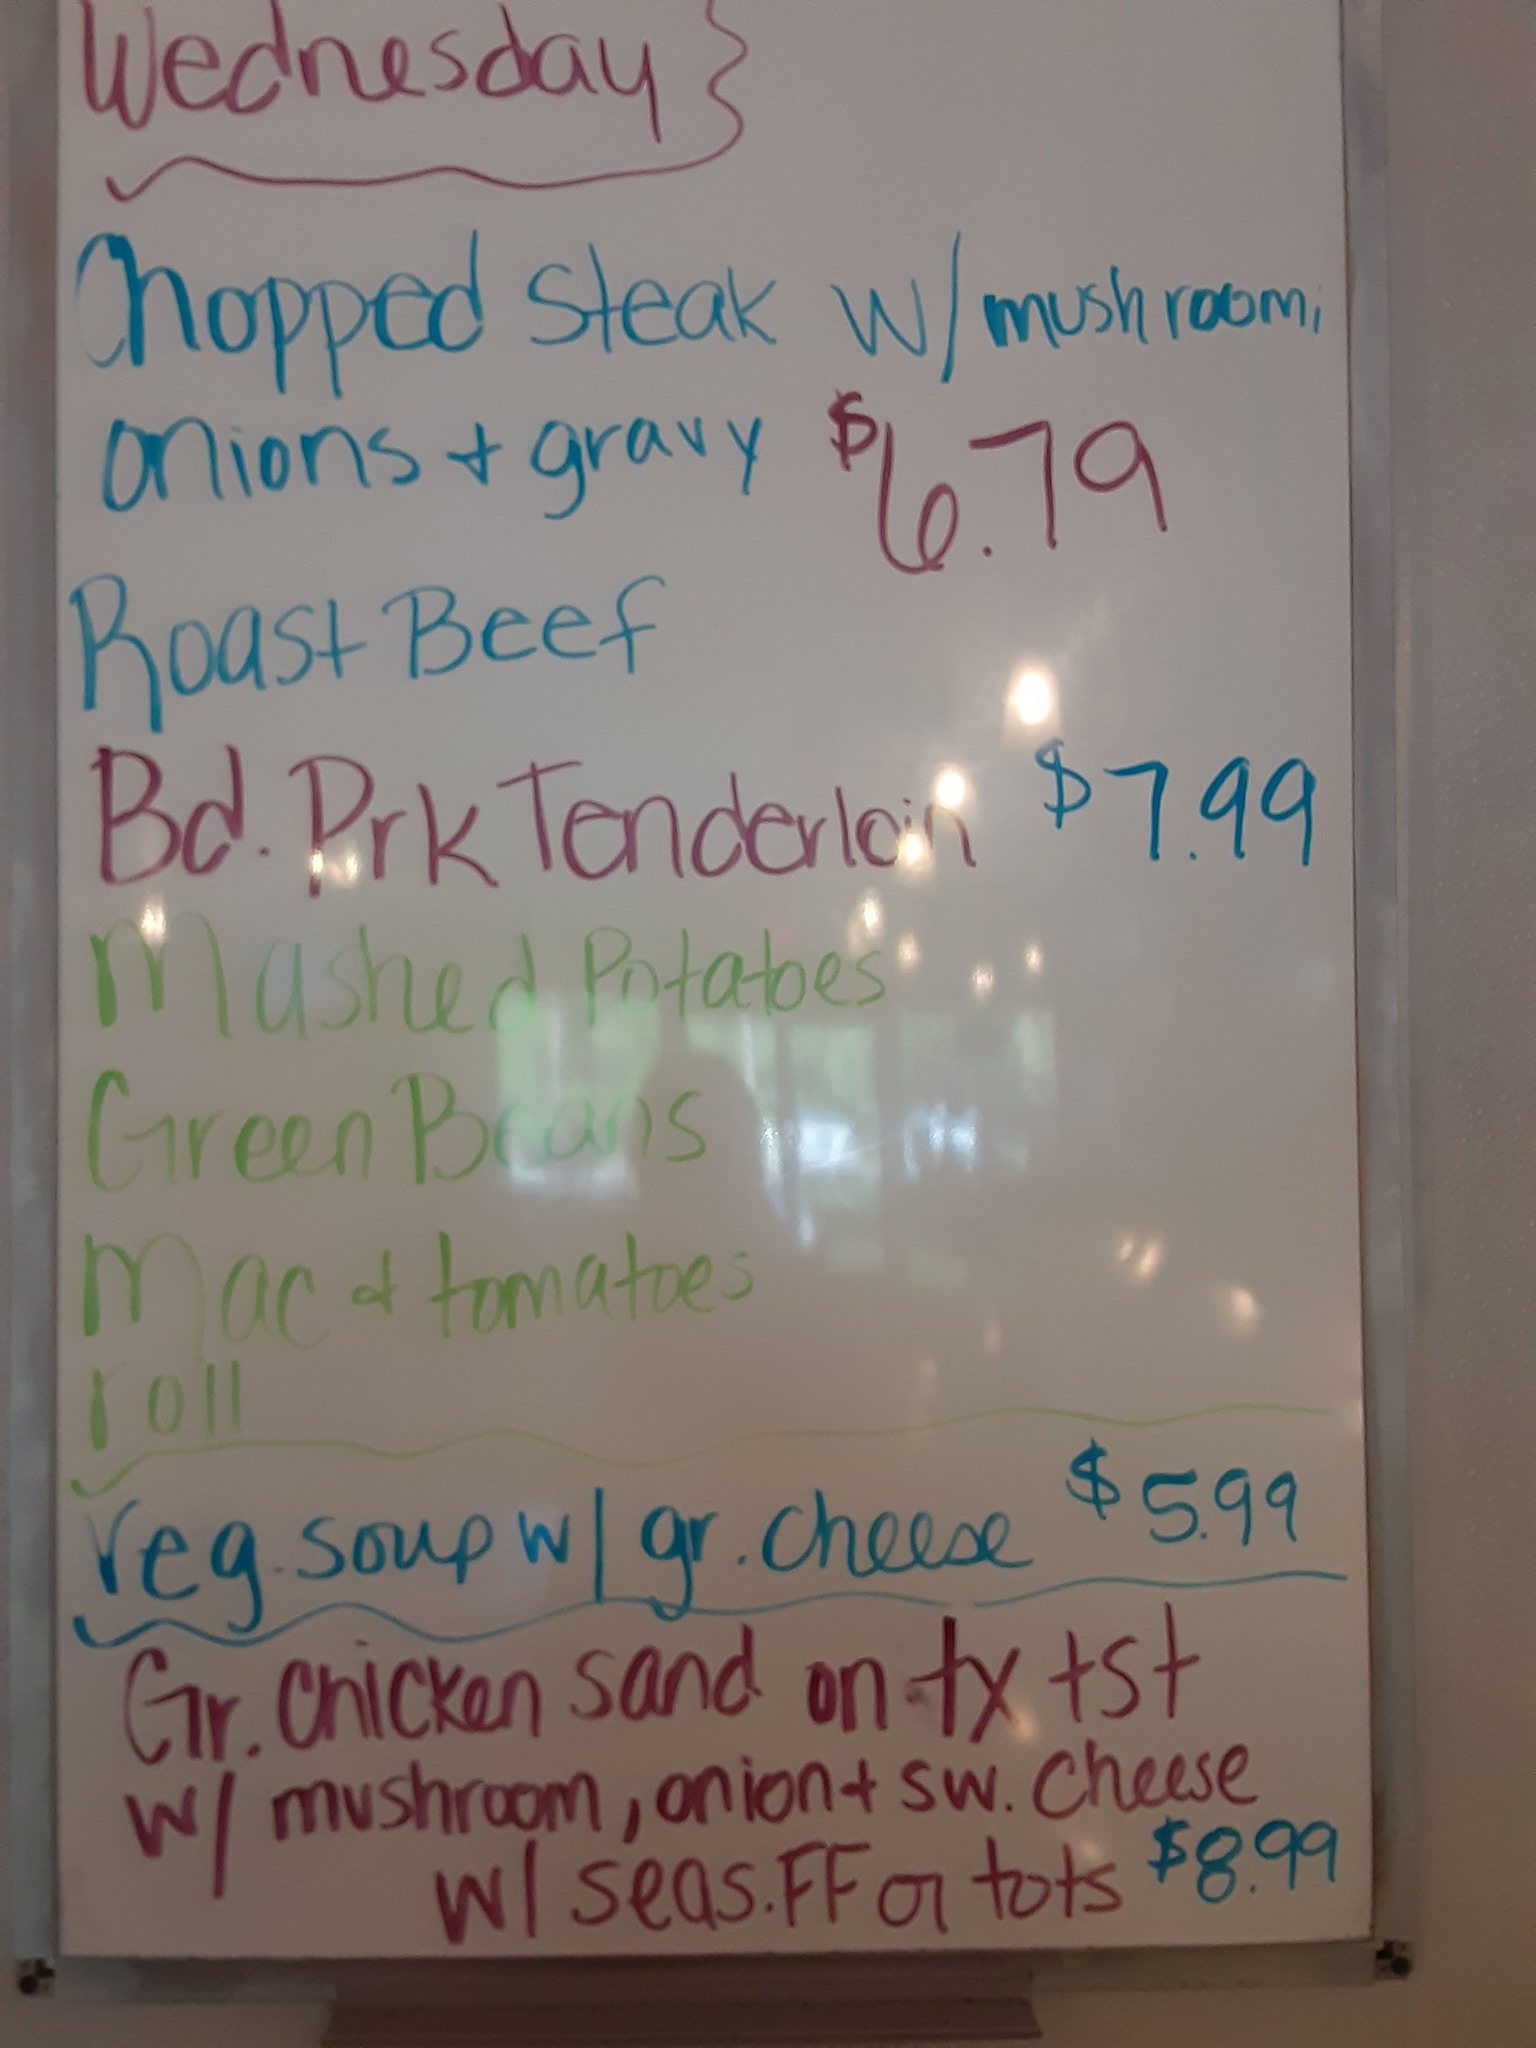 Wednesday
Chopped Steak w/ mushroom,
onions + gravy $6.79
Roast Beef
Bd. Prk Tenderloin $7.99
Mashed Potatoes
Green Beans
Mac + tomatoes
roll
Veg. soup w/ gr. cheese $5.99
Gr. Chicken sand on tx tst
w/ mushroom, onion + sw. Cheese
w/ seas. FF or tots $8.99